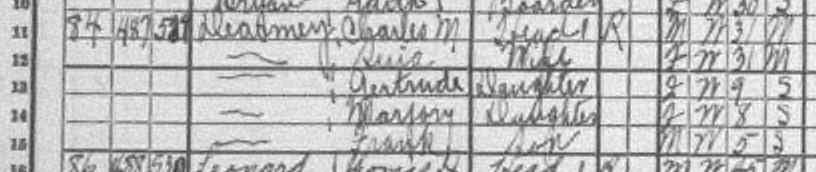 10 Edith Boarder F W 30 S
11 84 487 529 Deadmey, Charles M Head 1 R M W 31 M
12 — Wife F W 31 M
13 — Gertrude Daughter F W 9 S
14 — Marjory Daughter F W 8 S
15 — Frank Son M W 5 S
86 488 530 Leonard Thomas Head R M W M